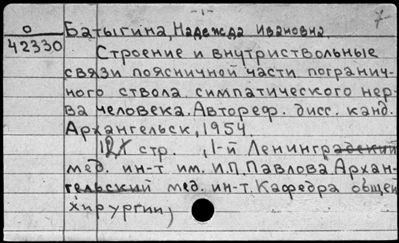 -1-
7
0 Батыгина, Надежда Ивановна.
42330
Строение и внутриствольные
связи поясничной части погранич-
ного ствола симпатического нер-
ва человека. Автореф. дисс. канд.
Архангельск, 1954.
стр. , 1-й Ленинградский
мед. ин-т им. И.П. Павлова Архан-
гельский мед. ин-т. Кафедра общей
хирургии)